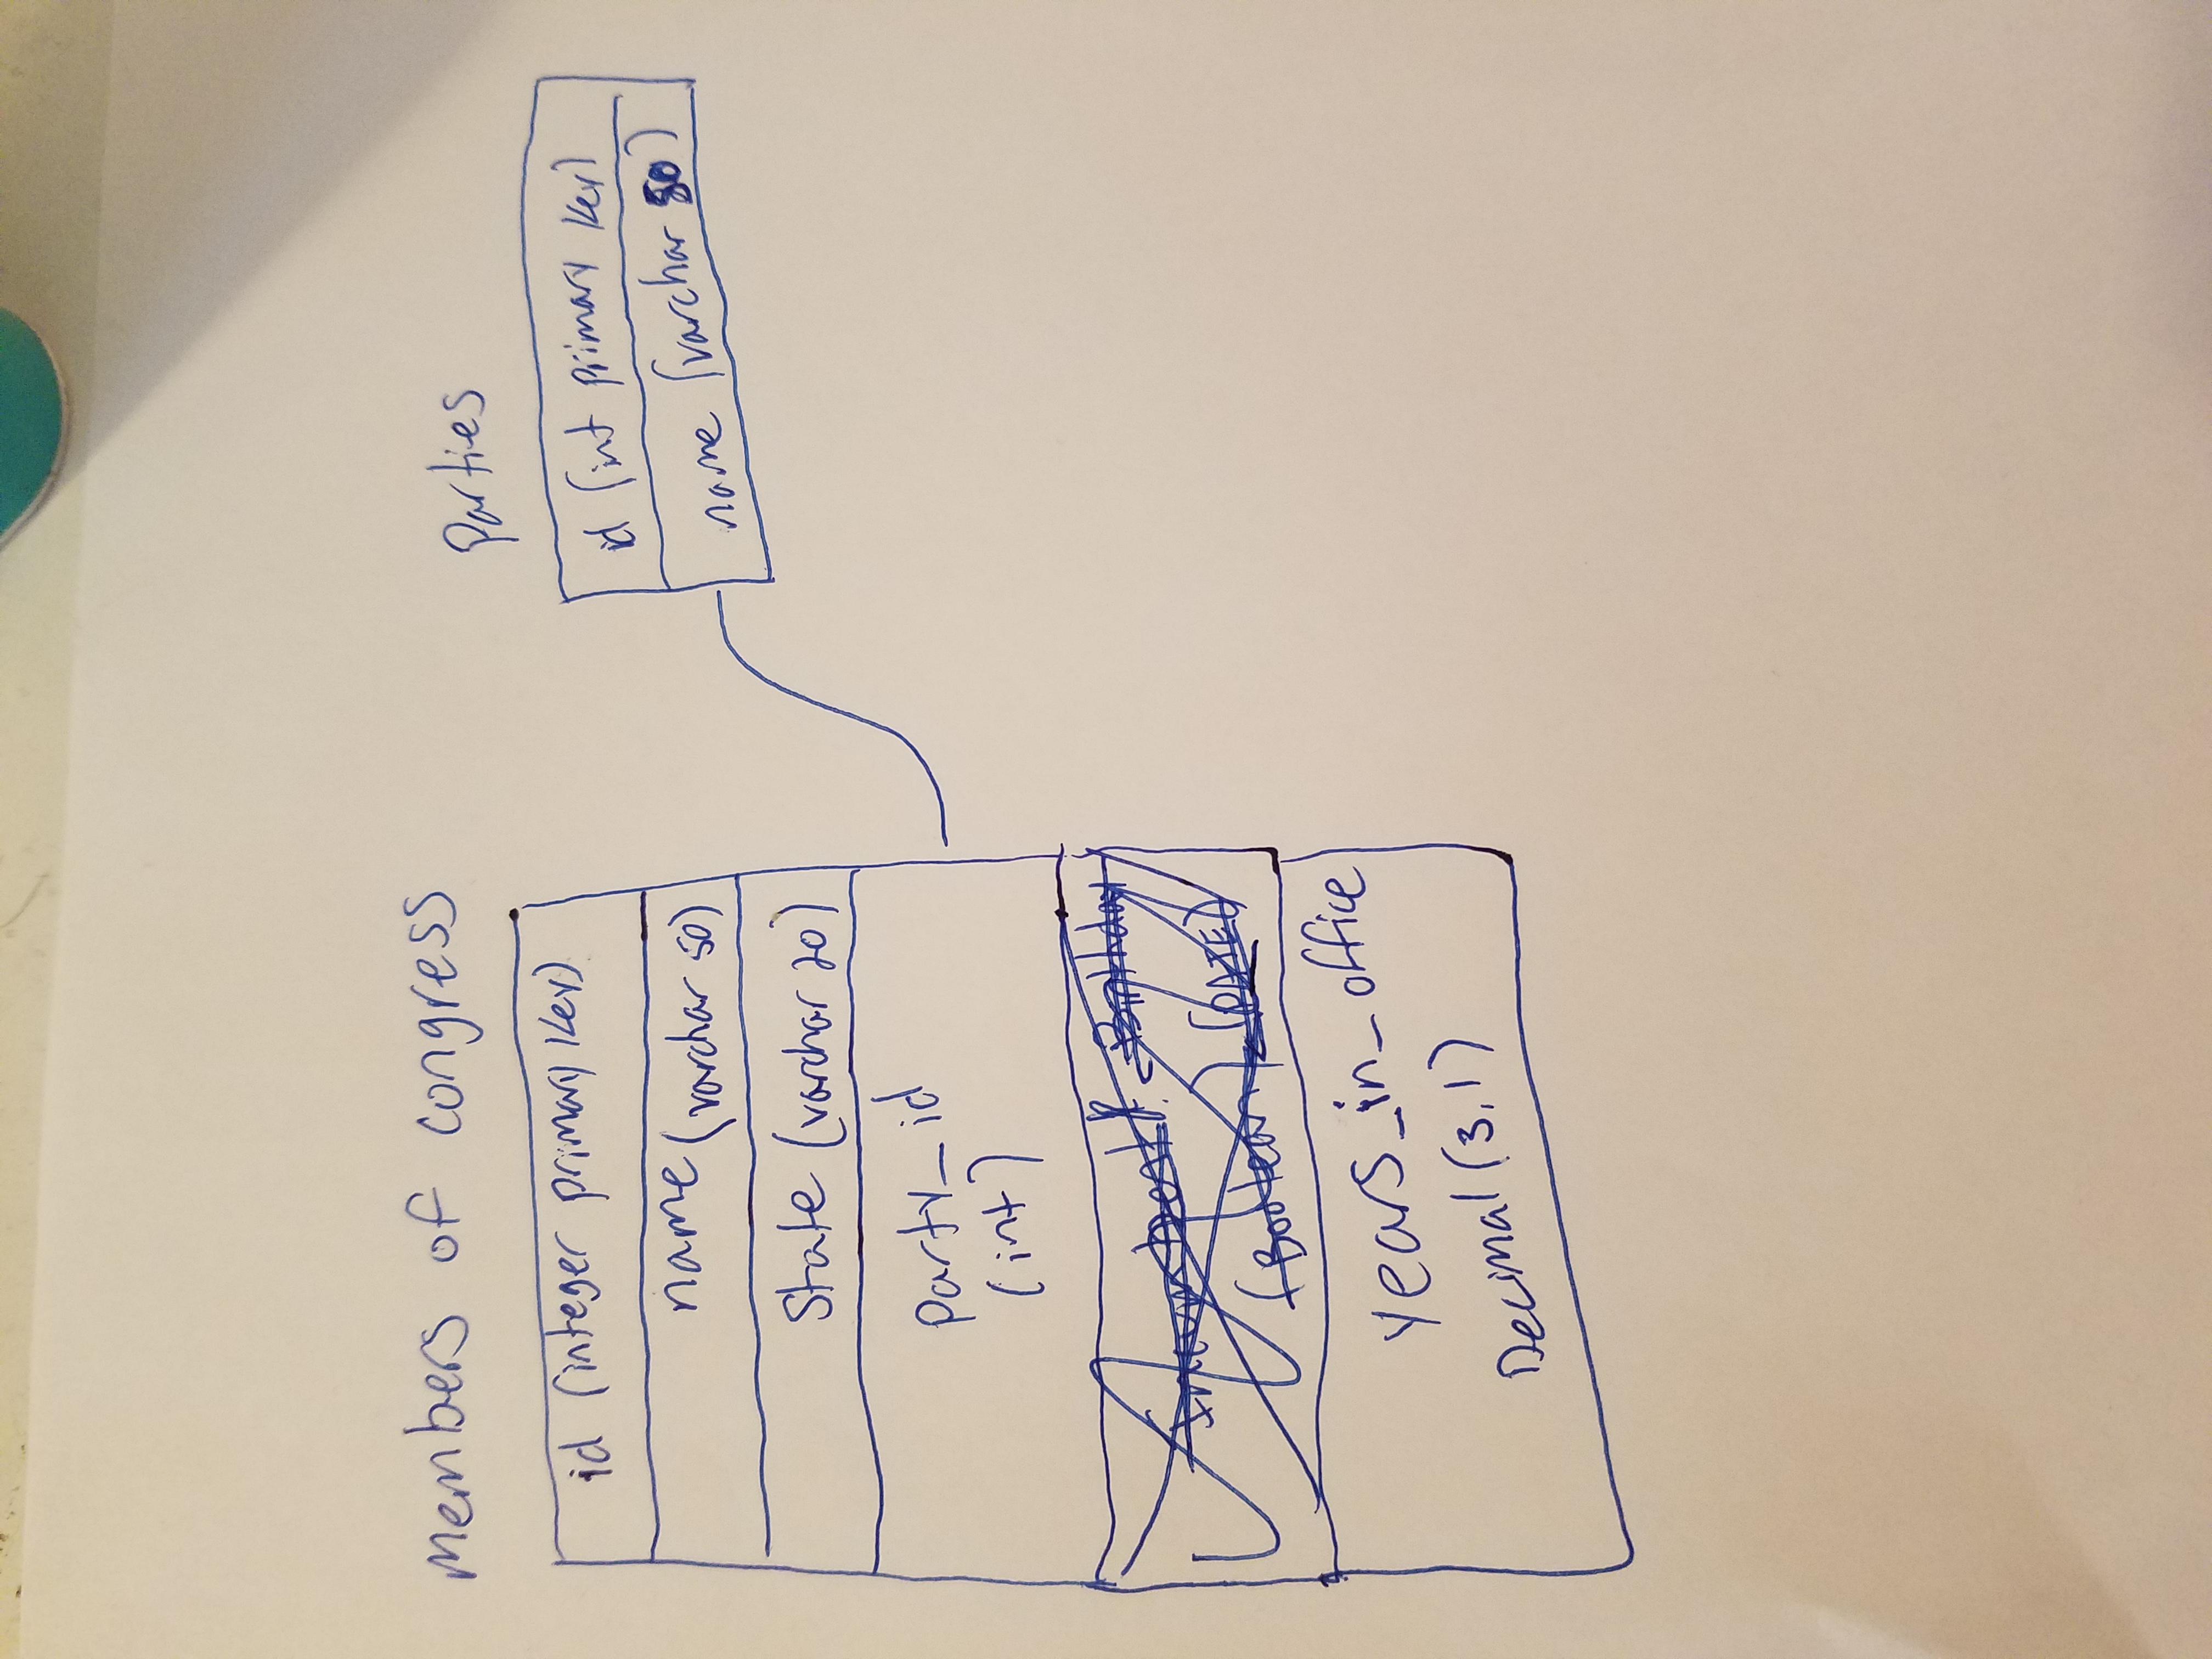 members of congress
id (integer primary key)
name (varchar 50)
State (varchar 20)
Party_id
(int)
Birthday
(Boolean) (DATE)
years_in_office
Decimal (3,1)
Parties
id (int primary key)
name (varchar 50)